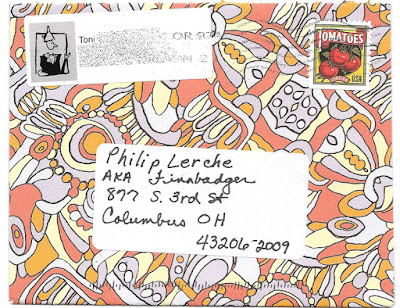 Toni
TOMATOES
USA
Philip Lerche
AKA Finnbadger
877 S. 3rd St
Columbus OH
43206-2009